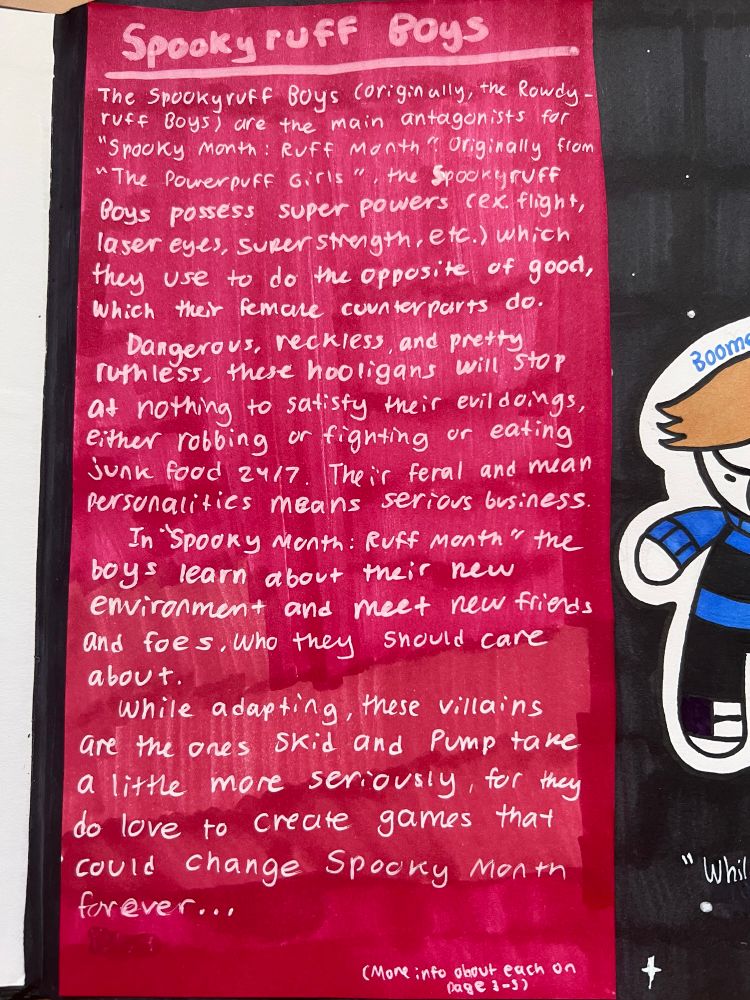 Spookyruff Boys
The Spookyruff Boys (originally, the Rowdy-
ruff Boys) are the main antagonists for
"Spooky Month: Ruff Month". Originally from
"The Powerpuff Girls", the Spookyruff
Boys possess super powers (ex. flight,
laser eyes, super strength, etc.) which
they use to do the opposite of good,
which their female counterparts do.
Dangerous, reckless, and pretty
ruthless, these hooligans will stop
at nothing to satisfy their evildoings,
either robbing or fighting or eating
junk food 24/7. Their feral and mean
personalities means serious business.
In "Spooky Month: Ruff Month" the
boys learn about their new
environment and meet new friends
and foes, who they should care
about.
While adapting, these villains
are the ones Skid and Pump take
a little more seriously, for they
do love to create games that
could change Spooky Month
forever...
(More info about each on
Boome
"Whil